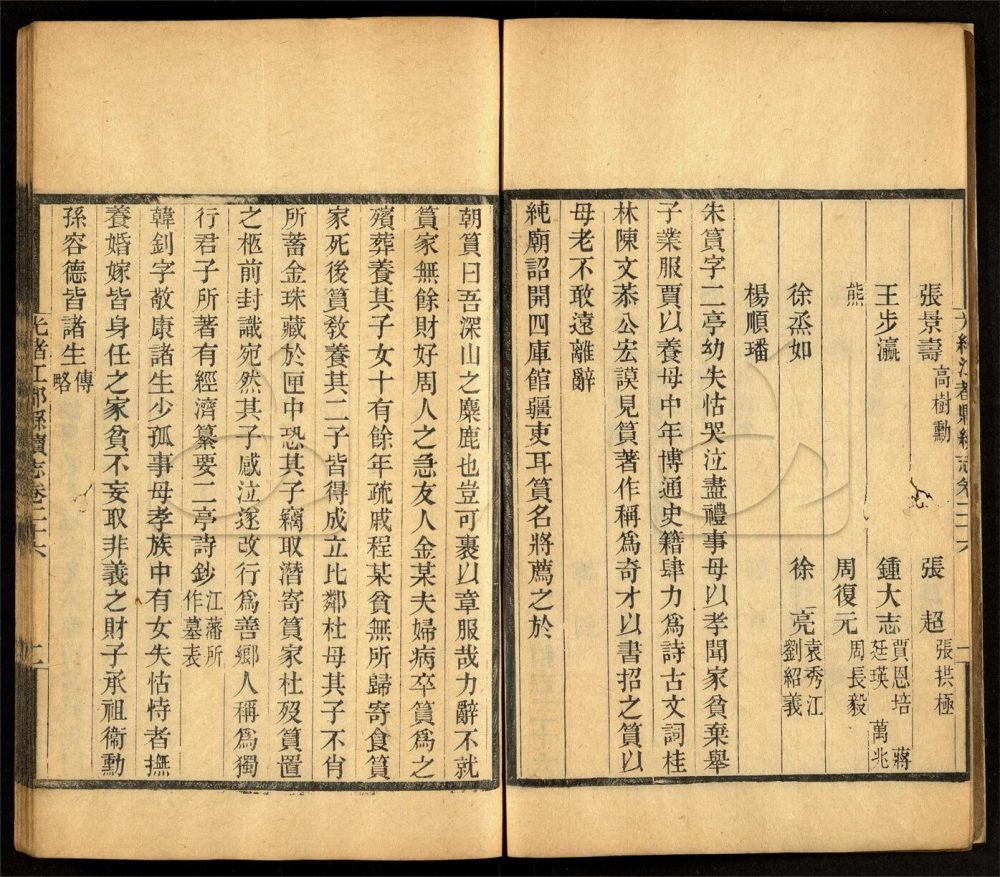 光緒江都縣續志卷二十六
張景壽 高樹勳 張超 張拱極
王步瀛 鍾大志 賈恩培 蔣廷瑛 萬兆
熊 周復元 周長毅
徐烝如 徐亮 袁秀江 劉紹義
楊順璠
朱篔字二亭幼失怙哭泣盡禮事母以孝聞家貧棄舉
子業服賈以養母中年博通史籍肆力爲詩古文詞桂
林陳文恭公宏謨見篔著作稱爲奇才以書招之篔以
母老不敢遠離辭
純廟詔開四庫館疆吏耳篔名將薦之於
朝篔曰吾深山之麋鹿也豈可裹以章服哉力辭不就
篔家無餘財好周人之急友人金某夫婦病卒篔爲之
殯葬養其子女十有餘年疏戚程某貧無所歸寄食篔
家死後篔敎養其二子皆得成立比鄰杜母其子不肖
所蓄金珠藏於匣中恐其子竊取潛寄篔家杜歿篔置
之柩前封識宛然其子感泣遂改行爲善鄉人稱爲獨
行君子所著有經濟纂要二亭詩鈔 江藩所作墓表
韓釗字敬康諸生少孤事母孝族中有女失怙恃者撫
養婚嫁皆身任之家貧不妄取非義之財子承祖衛勳
孫容德皆諸生 傳略
光緒江都縣續志卷二十六 二